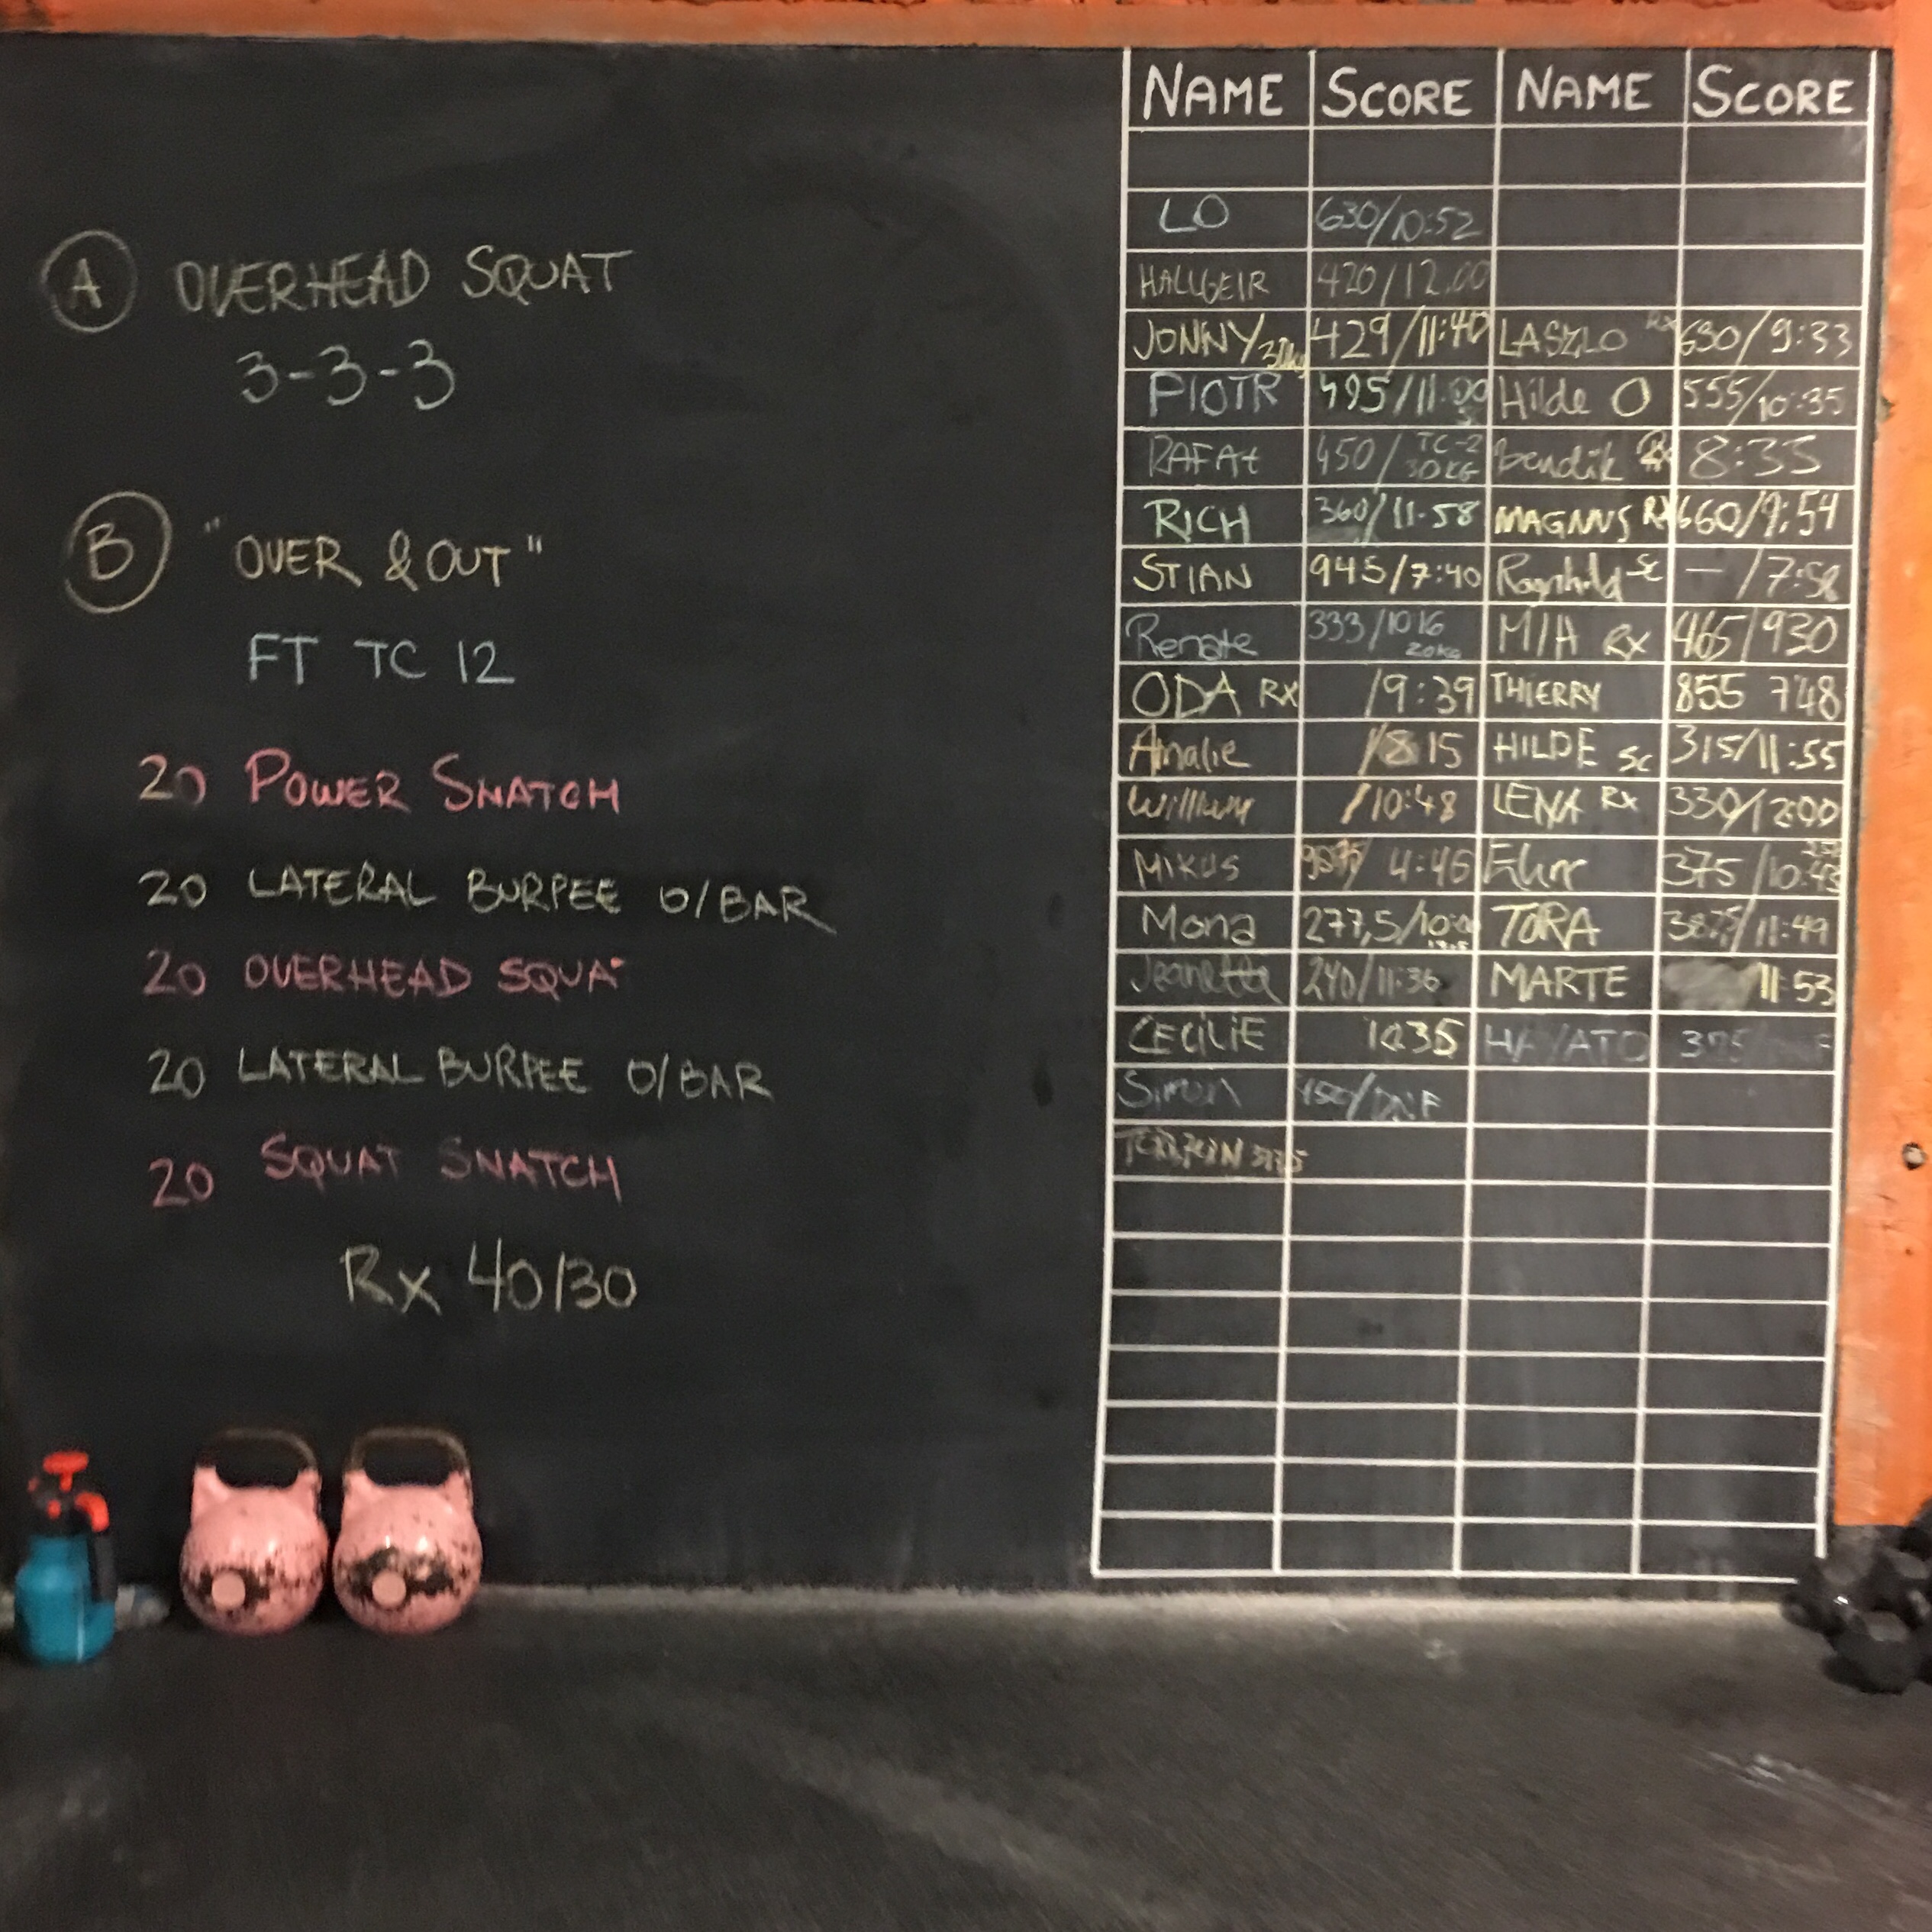 A OVERHEAD SQUAT
3-3-3
B "OVER & OUT"
FT TC 12
20 POWER SNATCH
20 LATERAL BURPEE O/BAR
20 OVERHEAD SQUA
20 LATERAL BURPEE O/BAR
20 SQUAT SNATCH
Rx 40/30
NAME SCORE NAME SCORE
LO 630/10:52
HALLGEIR 420/12.00
JONNY 30kg 429/11:40 LASZLO Rx 630/9:33
PIOTR 495/11.00 Hilde O 555/10:35
RAFAt 450/ TC-2 30KG Bendik Rx 8:35
RICH 360/11.58 MAGNUS RX 660/9:54
STIAN 945/7:40 Ragnhild Sc — /7:58
Renate 333/1016 20KG MIA RX 465/930
ODA RX /9:39 THIERRY 855 748
Amalie /8 15 HILDE Sc 315/11:55
William /10:48 LENA Rx 330/12:00
MIKUS 4:46 375/10:43
Mona 277,5/10:00 TORA 387,5/11:49
Jeanette 240/11:36 MARTE 11:53
CECILIE 10:35 HAYATO 375/
Simon /DNF